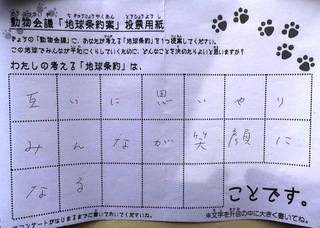 動物会議「地球条約案」投票用紙
きょうの「動物会議」に、あなたが考える「地球条約」を1つ提案してください。
この地球でみんなが平和にくらしていくために、どんなことを決めたらよいと思いますか?
わたしの考える「地球条約」は、
互いに思いやり
みんなが笑顔に
なる
ことです。
※文字を升目の中に大きく書いてね。
コンサートがはじまるまでに書いておいてくださいね。